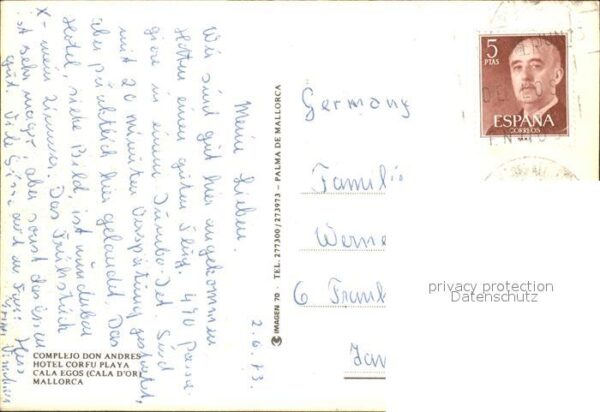 2.6.73
Meine Lieben.
Wir sind gut hier angekommen
Hatten einen guten Flug. 490 Passa-
giere in einem Jumbo-Jet. Sind
mit 20 minuten Verspätung gestartet,
aber pünktlich hier gelandet. Das
Hotel, siehe Bild, ist wunderbar
X- mein Zimmer. Das Frühstück
ist sehr mager aber sonst das Essen
gut. Viele Grüsse
COMPLEJO DON ANDRES
HOTEL CORFU PLAYA
CALA EGOS (CALA D'OR)
MALLORCA
IMAGEN 70 - TEL. 277300/273973 - PALMA DE MALLORCA
5
PTAS
ESPAÑA
CORREOS
Germany
Famili
Werne
6 Frankf
privacy protection
Datenschutz